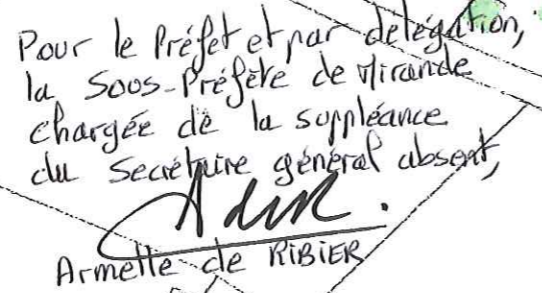 Pour le Préfet et par délégation,
la Sous-Préfète de Mirande
chargée de la suppléance
du Secrétaire général absent,
Armelle de RIBIER